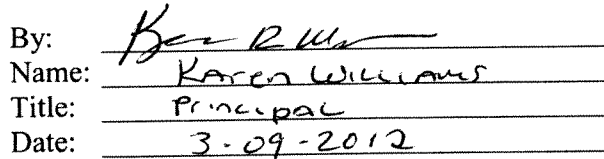 By:
Name: Karen Williams
Title: Principal
Date: 3-09-2012